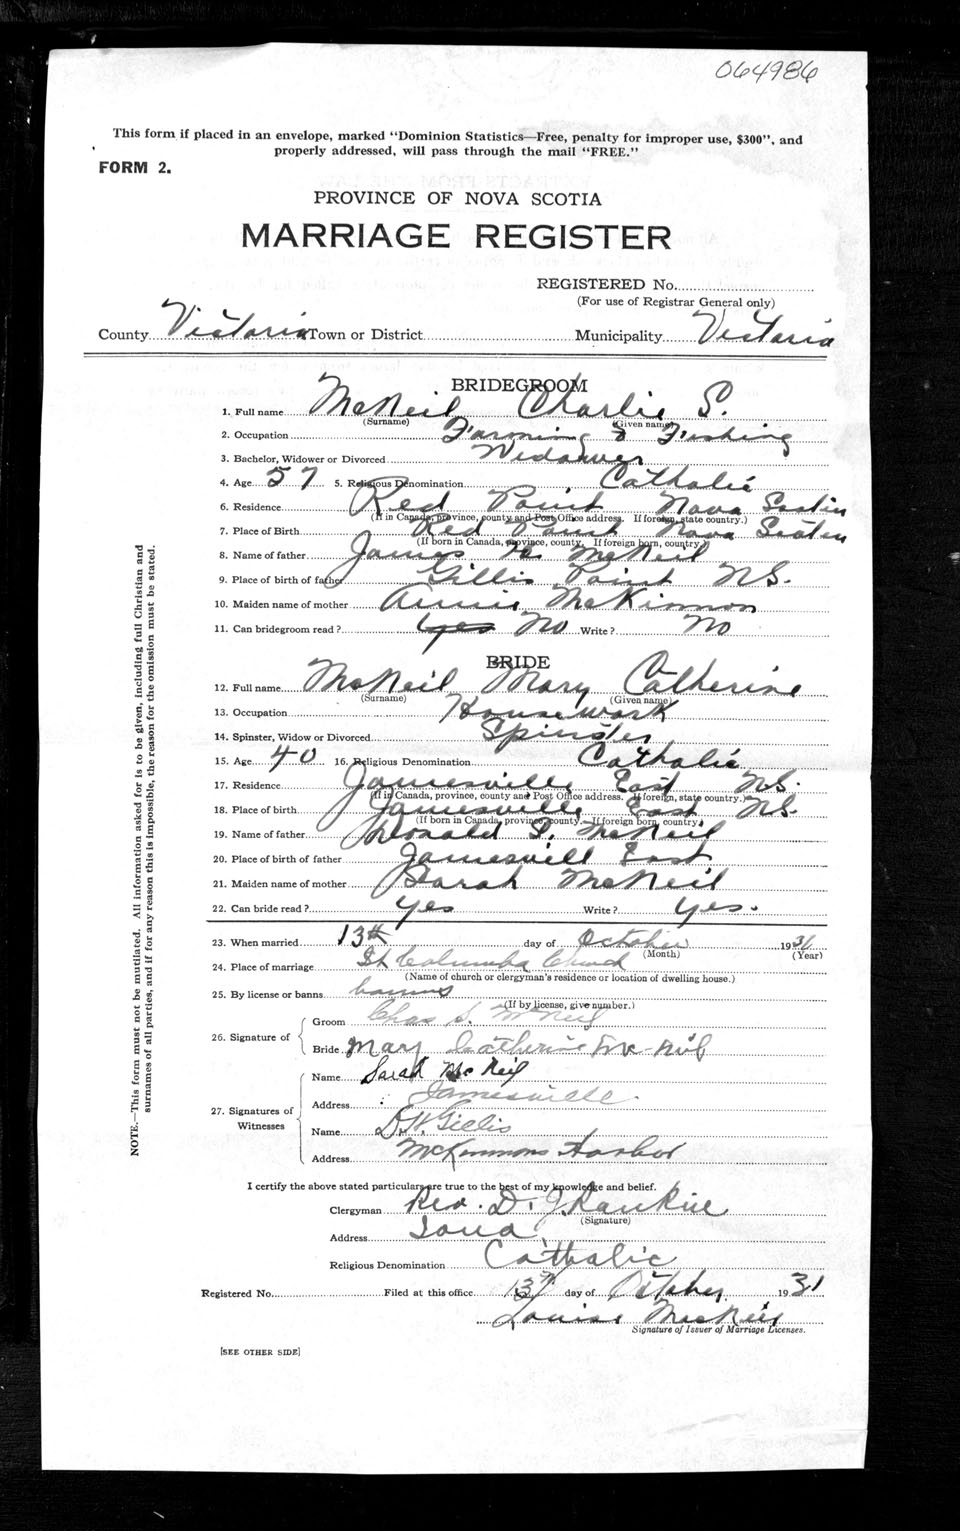 064986
This form if placed in an envelope, marked "Dominion Statistics—Free, penalty for improper use, $300", and
properly addressed, will pass through the mail "FREE."
FORM 2.
PROVINCE OF NOVA SCOTIA
MARRIAGE REGISTER
REGISTERED No.
(For use of Registrar General only)
County Victoria Town or District Municipality Victoria
BRIDEGROOM
1. Full name McNeil Charlie S.
(Surname) (Given name)
2. Occupation Farming & Fishing
3. Bachelor, Widower or Divorced Widower
4. Age 57 5. Religious Denomination Catholic
6. Residence Red Point Nova Scotia
(If in Canada, province, county and Post Office address. If foreign, state country.)
7. Place of Birth Red Point Nova Scotia
(If born in Canada, province, county. If foreign born, country.)
8. Name of father James McNeil
9. Place of birth of father Gillis Point N.S.
10. Maiden name of mother Annie McKinnon
11. Can bridegroom read? Yes No Write? No
BRIDE
12. Full name McNeil Mary Catherine
(Surname) (Given name)
13. Occupation Housework
14. Spinster, Widow or Divorced Spinster
15. Age 40 16. Religious Denomination Catholic
17. Residence Jamesville East N.S.
(If in Canada, province, county and Post Office address. If foreign, state country.)
18. Place of birth Jamesville East N.S.
(If born in Canada, province, county.—If foreign born, country.)
19. Name of father Donald S. McNeil
20. Place of birth of father Jamesvill East
21. Maiden name of mother Sarah McNeil
22. Can bride read? Yes Write? Yes.
23. When married 13th day of October 1931
(Month) (Year)
24. Place of marriage St Columba Church
(Name of church or clergyman's residence or location of dwelling house.)
25. By license or banns banns
(If by license, give number.)
26. Signature of
Groom Chas S. McNeil
Bride Mary Catherine McNeil
27. Signatures of Witnesses
Name Sarah McNeil
Address Jamesville
Name D. H. Gillis
Address McKinnons Harbor
I certify the above stated particulars are true to the best of my knowledge and belief.
Clergyman Rev. D. J. Rankin
(Signature)
Address Iona
Religious Denomination Catholic
Registered No. Filed at this office 13th day of October 1931
Louise MacNeil
Signature of Issuer of Marriage Licenses.
[SEE OTHER SIDE]
NOTE.—This form must not be mutilated. All information asked for is to be given, including full Christian and
surnames of all parties, and if for any reason this is impossible, the reason for the omission must be stated.